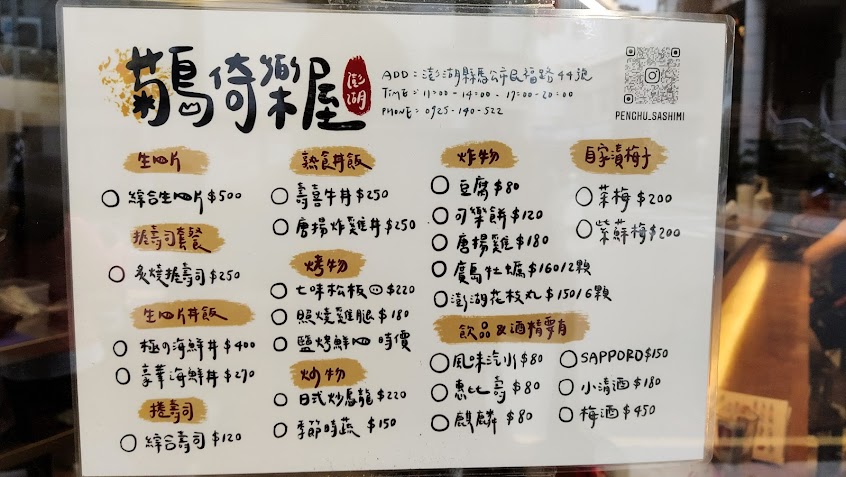 鵲倚樂屋
澎湖
ADD：澎湖縣馬公市民福路44號
TIME：11:00-14:00-17:00-20:00
PHONE：0925-140-522
PENCHU_SASHIMI
生魚片
綜合生魚片$500
握壽司套餐
炙燒握壽司$250
生魚片丼飯
極の海鮮丼$400
豪華海鮮丼$270
捲壽司
綜合壽司$120
熟食丼飯
壽喜牛丼$250
唐揚炸雞丼$250
烤物
七味松板$220
照燒雞腿$180
鹽烤鮮魚 時價
炒物
日式炒烏龍$220
季節時蔬 $150
炸物
豆腐$80
可樂餅$120
唐揚雞$180
廣島牡蠣$160/2顆
澎湖花枝丸$150/6顆
自家漬梅子
茶梅$200
紫蘇梅$200
飲品&酒精專有
風味汽水$80
惠比壽 $80
麒麟 $80
SAPPORO$150
小清酒$180
梅酒$450